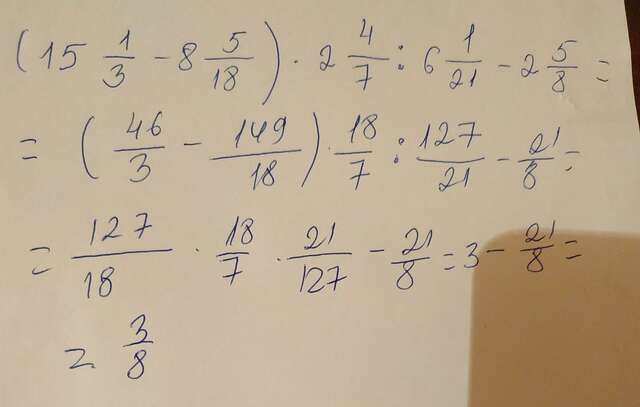 (15 1/3 - 8 5/18) · 2 4/7 : 6 1/21 - 2 5/8 =
= (46/3 - 149/18) · 18/7 : 127/21 - 21/8 =
= 127/18 · 18/7 · 21/127 - 21/8 = 3 - 21/8 =
= 3/8